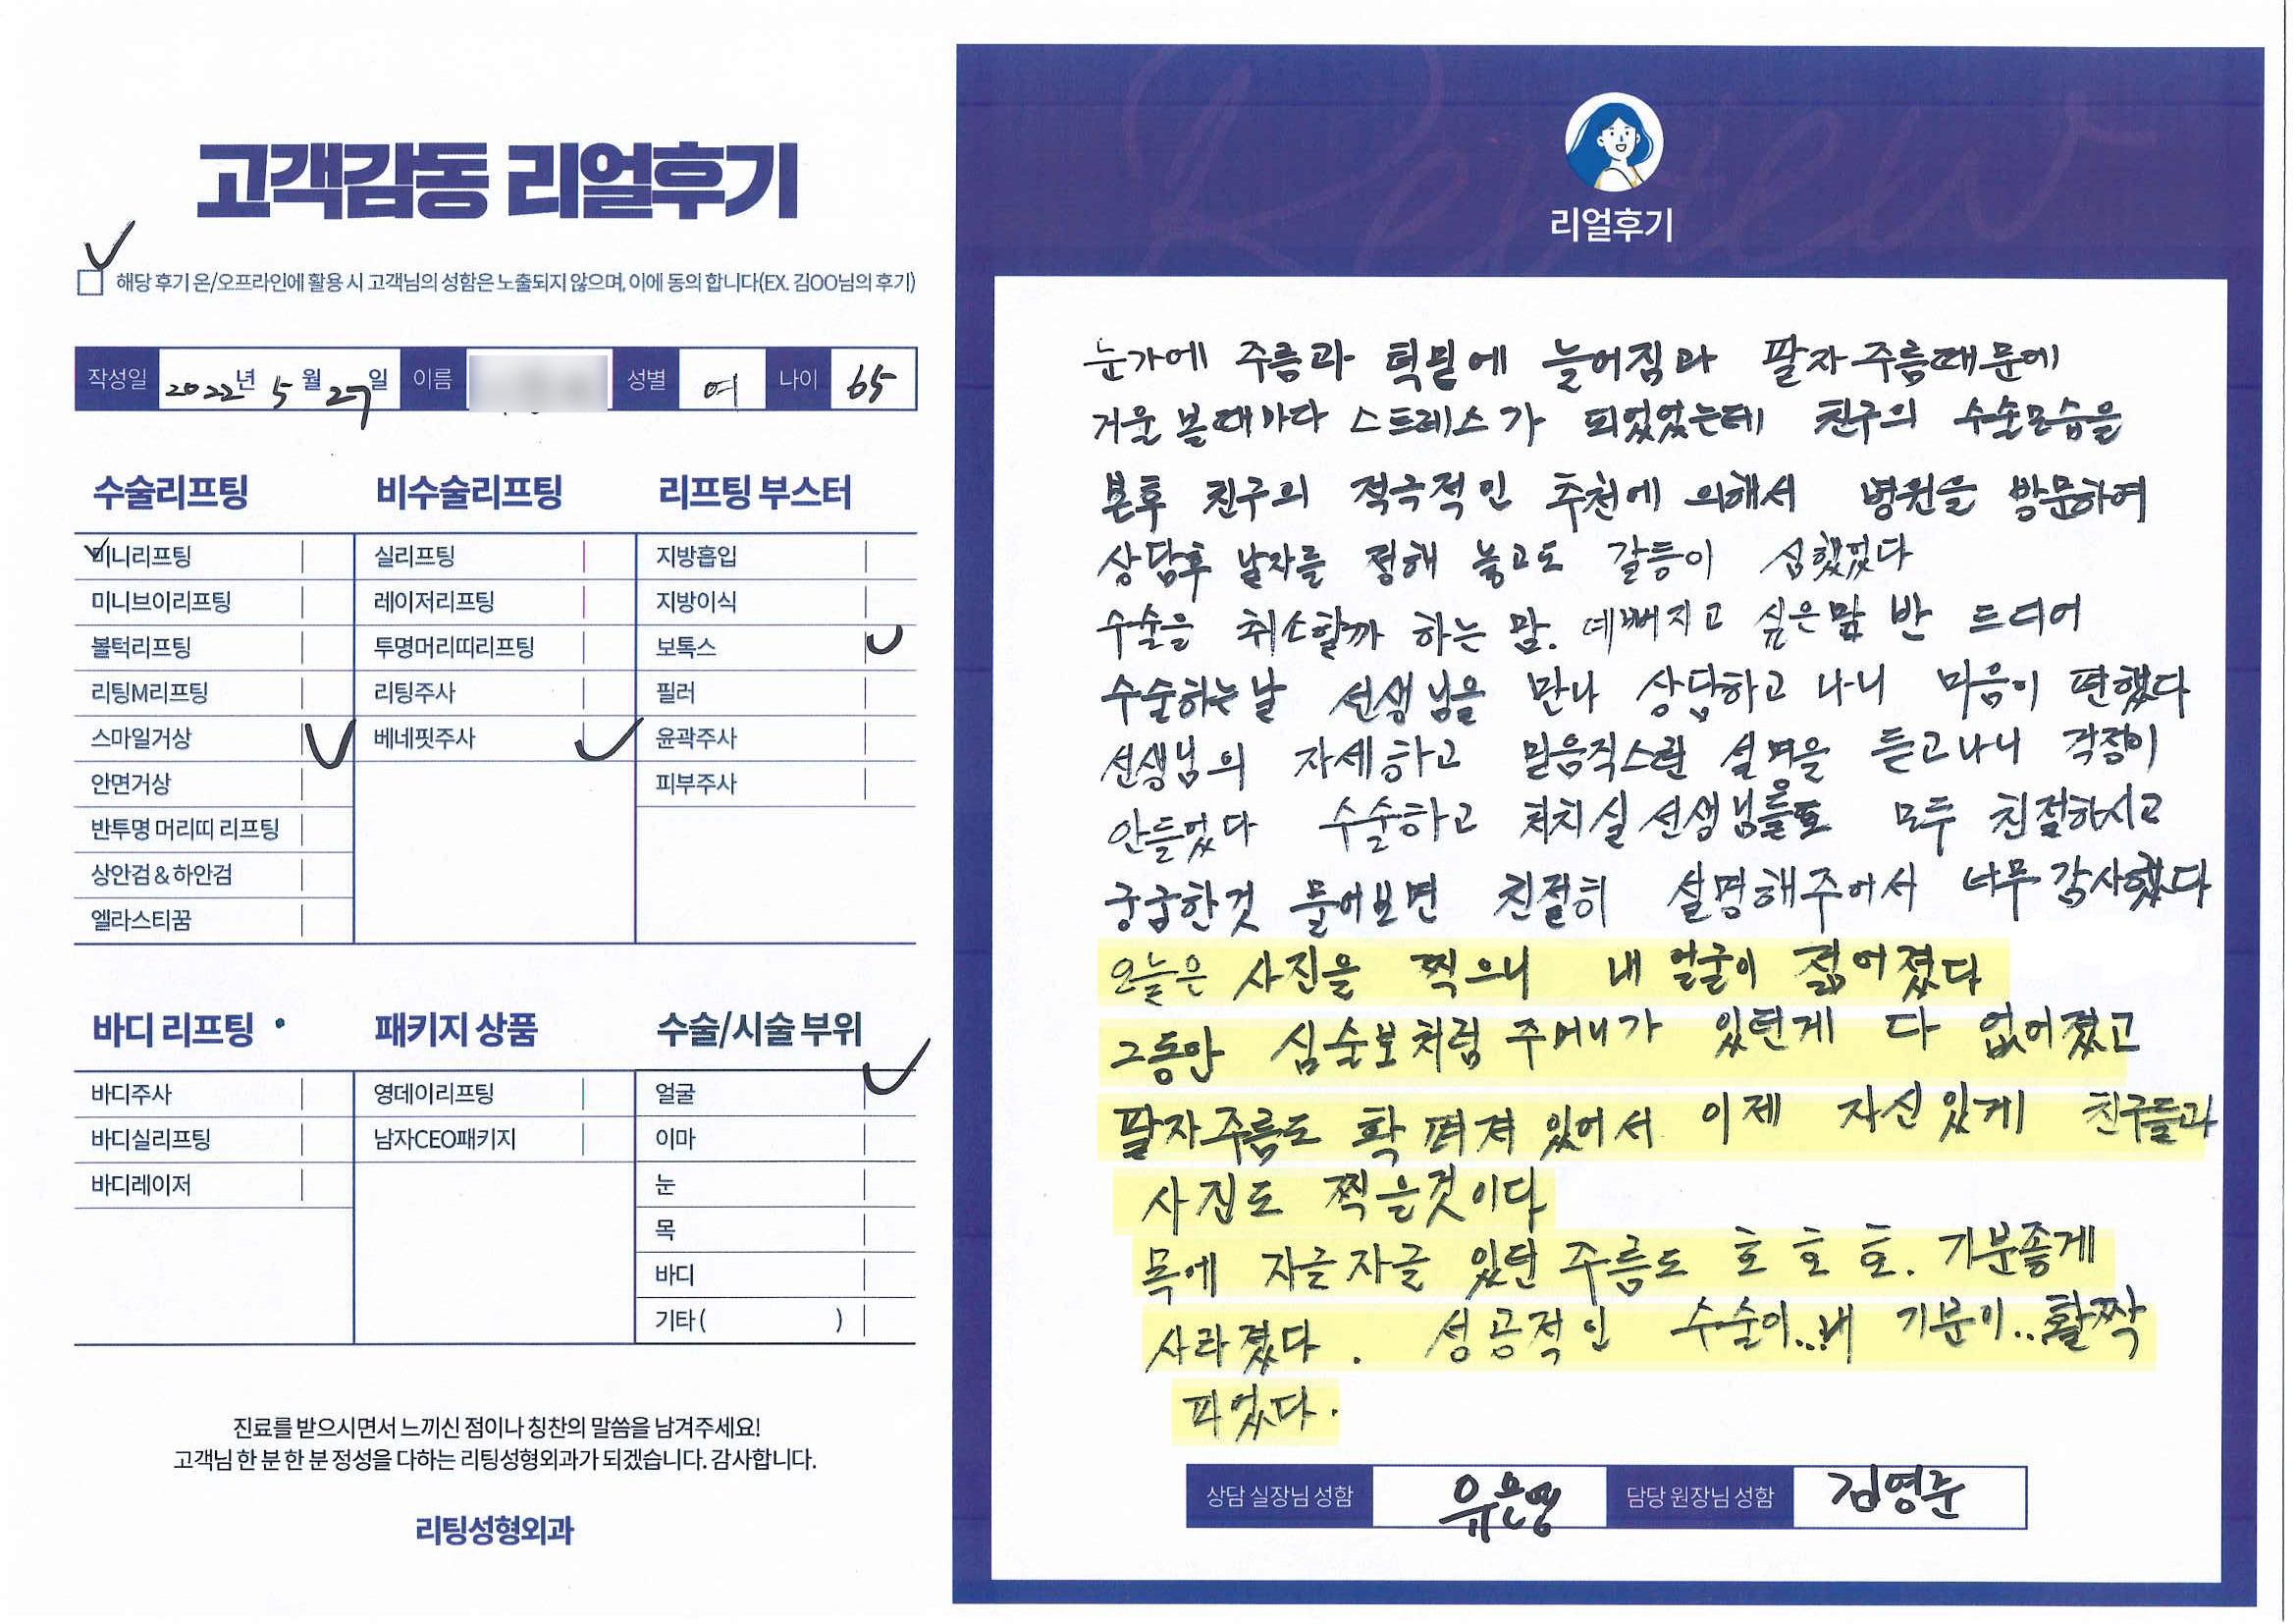 고객감동 리얼후기
해당 후기 온/오프라인에 활용 시 고객님의 성함은 노출되지 않으며, 이에 동의 합니다(EX. 김OO님의 후기)
작성일 2022년 5월 27일 이름 성별 여 나이 65
수술리프팅
미니리프팅
미니브이리프팅
볼턱리프팅
리팅M리프팅
스마일거상
안면거상
반투명 머리띠 리프팅
상안검 & 하안검
엘라스티꿈
비수술리프팅
실리프팅
레이저리프팅
투명머리띠리프팅
리팅주사
베네핏주사
리프팅 부스터
지방흡입
지방이식
보톡스
필러
윤곽주사
피부주사
바디 리프팅
바디주사
바디실리프팅
바디레이저
패키지 상품
영데이리프팅
남자CEO패키지
수술/시술 부위
얼굴
이마
눈
목
바디
기타 ( )
진료를 받으시면서 느끼신 점이나 칭찬의 말씀을 남겨주세요!
고객님 한 분 한 분 정성을 다하는 리팅성형외과가 되겠습니다. 감사합니다.
리팅성형외과
Review
리얼후기
눈가에 주름과 턱밑에 늘어짐과 팔자주름때문에
거울 볼때마다 스트레스가 되었었는데 친구의 수술모습을
본후 친구의 적극적인 추천에 의해서 병원을 방문하여
상담후 날자를 정해 놓고도 갈등이 심했었다
수술을 취소할까 하는 맘. 예뻐지고 싶은맘 반 드디어
수술하는날 선생님을 만나 상담하고 나니 마음이 편했다
선생님의 자세하고 믿음직스런 설명을 듣고나니 걱정이
안들었다 수술하고 처치실 선생님들도 모두 친절하시고
궁굼한것 물어보면 친절히 설명해주어서 너무 감사했다
오늘은 사진을 찍으니 내 얼굴이 젊어졌다
그동안 심술보처럼 주머니가 있던게 다 없어졌고
팔자주름도 확 펴져 있어서 이제 자신있게 친구들과
사진도 찍을것이다
목에 자글자글 있던 주름도 호 호 호. 기분좋게
사라졌다. 성공적인 수술이..내 기분이..활짝
피었다.
상담 실장님 성함 유은영 담당 원장님 성함 김영준